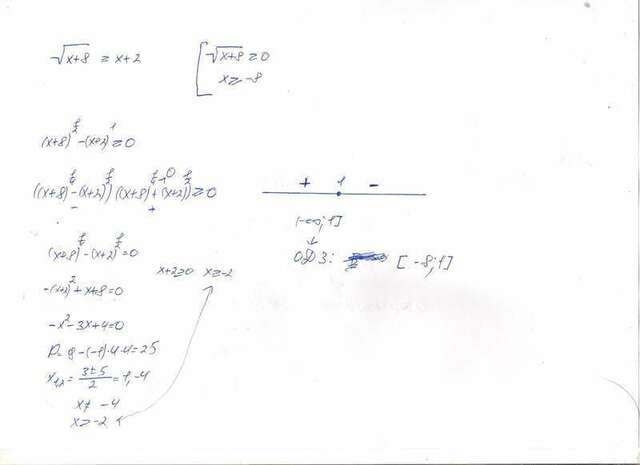 √x+8 ≥ x+2
[ √x+8 ≥ 0
x ≥ -8
(x+8)^½ - (x+2)^1 ≥ 0
((x+8)^¼ - (x+2)^½)((x+8)^¼ + (x+2)^½) ≥ 0
- +
(x+8)^¼ - (x+2)^½ = 0
x+2≥0 x≥-2
-(x+2)² + x+8 = 0
-x² - 3x + 4 = 0
D = 9 - (-1)·4·4 = 25
x1,2 = 3±5/2 = 1, -4
x≠ -4
x≥-2
+ 1 -
(-∞;1]
↓
ОДЗ: [-8;1]